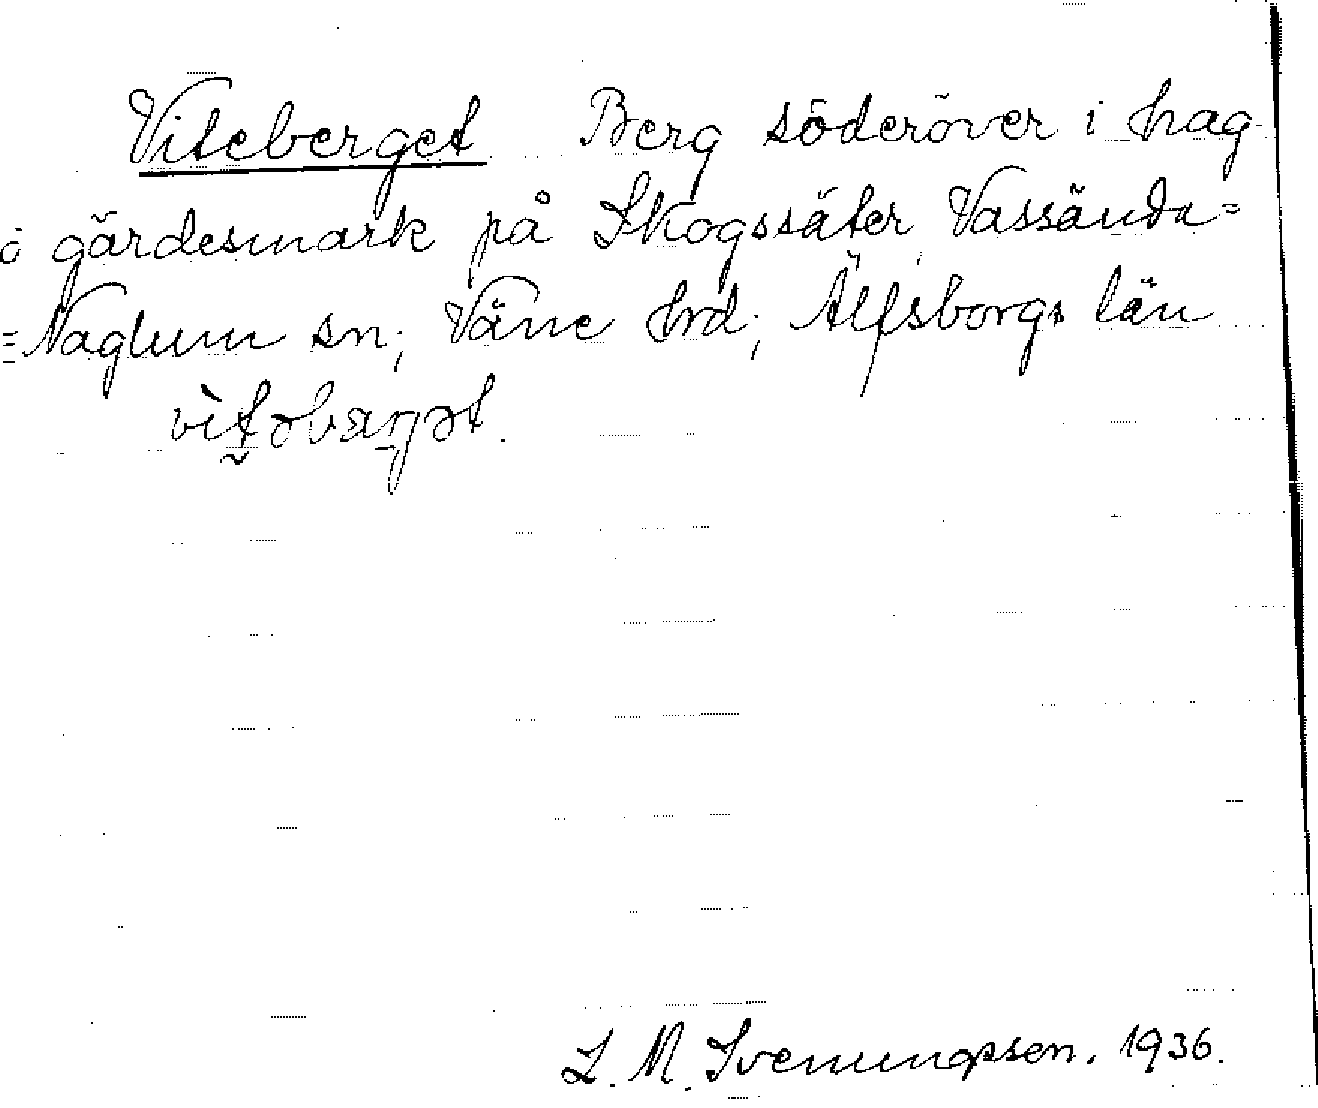 Viteberget Berg söderöver i hag-
gärdesmark på Skogssäter Vassända=
=Naglum sn; Väne hrd; Älfsborgs län
L. M. Svenungsson. 1936.